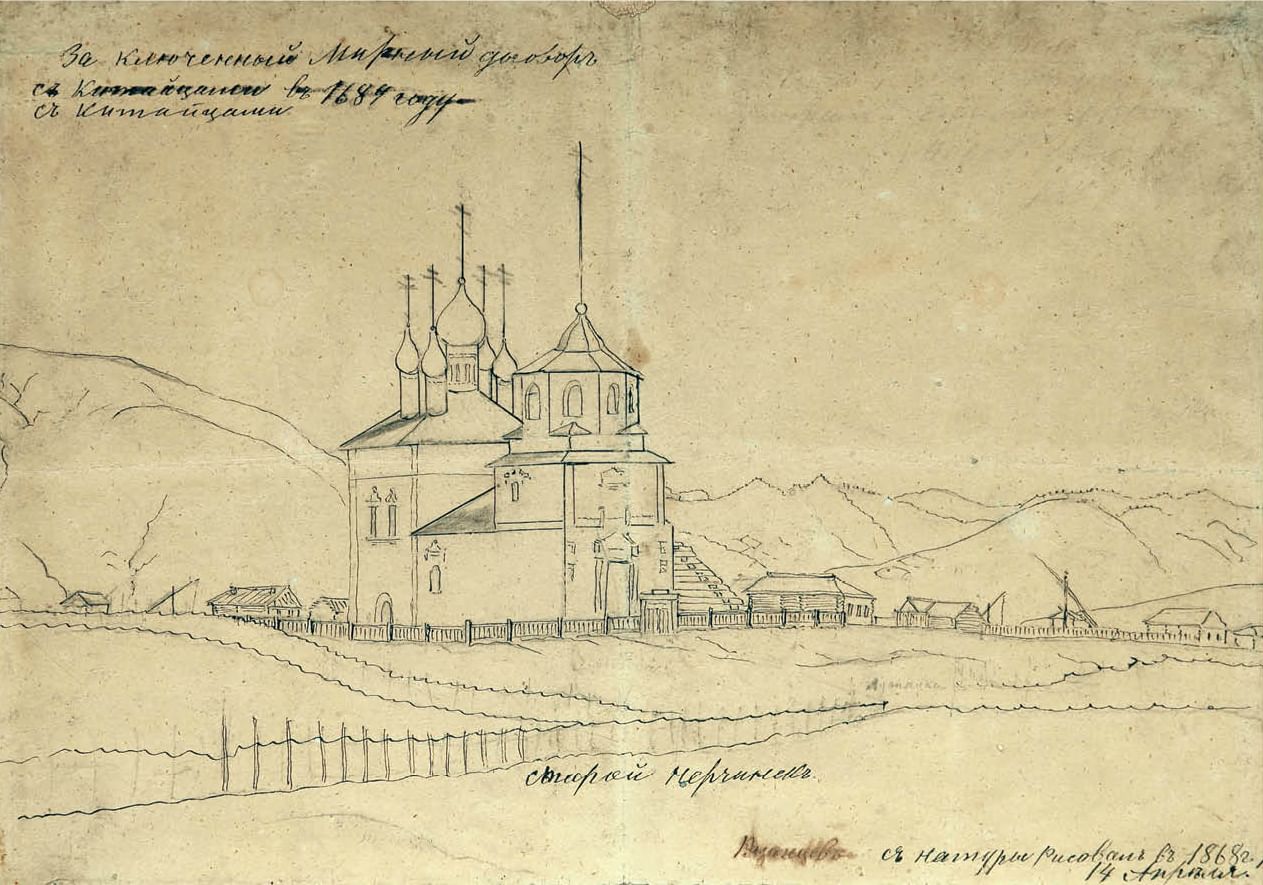 За ключенный Мирный договоръ
съ Китайцами въ 1689 году
съ Китайцами
Старой Нерчинскъ.
съ натуры рисовалъ въ 1868 г,
14 Апреля.